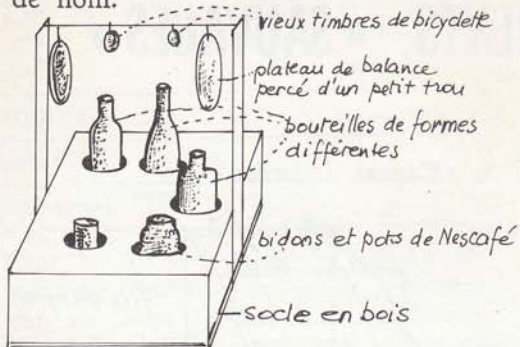 de nom.
vieux timbres de bicyclette
plateau de balance
percé d'un petit trou
bouteilles de formes
différentes
bidons et pots de Nescafé
socle en bois